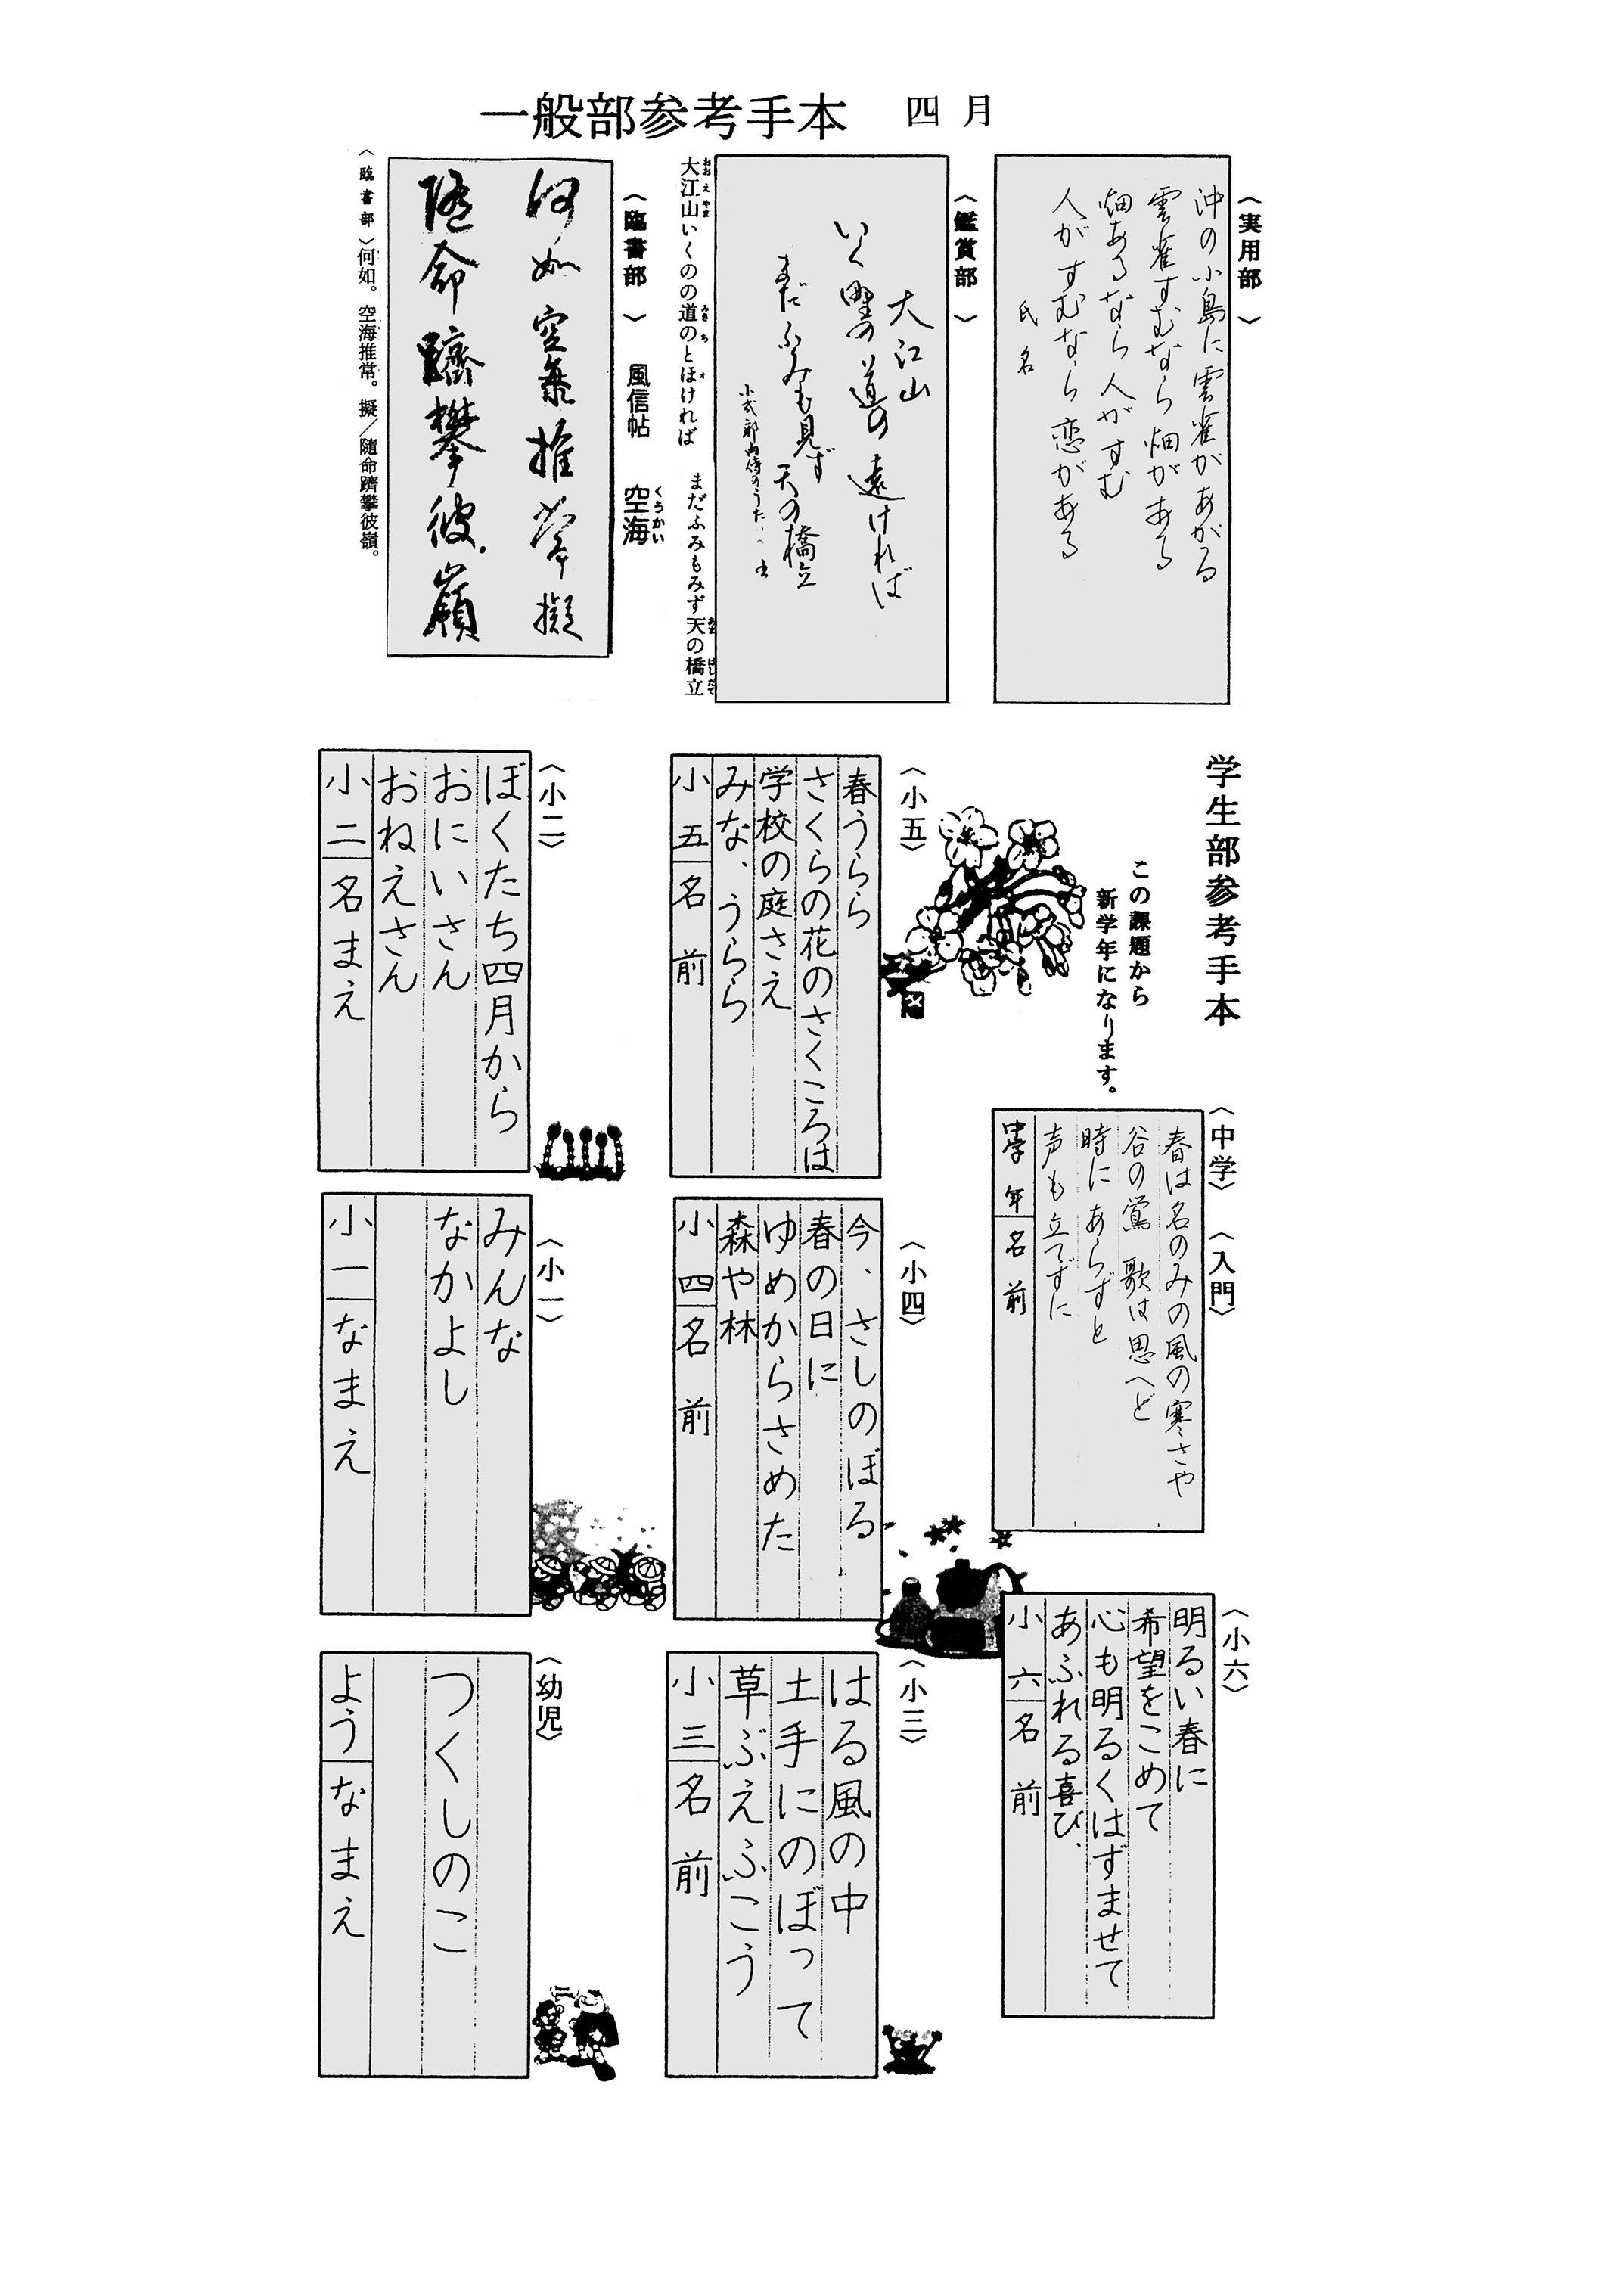 一般部参考手本　四月
〈実用部〉
沖の小島に雲雀があがる
雲雀すむなら畑がある
畑あるなら人がすむ
人がすむなら恋がある
氏名
〈鑑賞部〉
大江山
いく野の道の遠ければ
まだふみも見ず
天の橋立
小式部内侍のうた
大江山いくのの道のとほければ　まだふみもみず天の橋立
〈臨書部〉　風信帖　空海
くうかい
何如空海推常擬
随命躋攀彼嶺
〈臨書部〉何如。空海推常。擬／随命躋攀彼嶺。
学生部参考手本
この課題から
新学年になります。
〈中学〉〈入門〉
春は名のみの風の寒さや
谷の鶯　歌は思へど
時にあらずと
声も立てずに
中学　年　名前
〈小六〉
明るい春に
希望をこめて
心も明るくはずませて
あふれる喜び、
小六　名前
〈小五〉
春うらら
さくらの花のさくころは
学校の庭さえ
みな、うらら
小五　名前
〈小四〉
今、さしのぼる
春の日に
ゆめからさめた
森や林
小四　名前
〈小三〉
はる風の中
土手にのぼって
草ぶえふこう
小三　名前
〈小二〉
ぼくたち四月から
おにいさん
おねえさん
小二　名まえ
〈小一〉
みんな
なかよし
小一　なまえ
〈幼児〉
つくしのこ
よう　なまえ